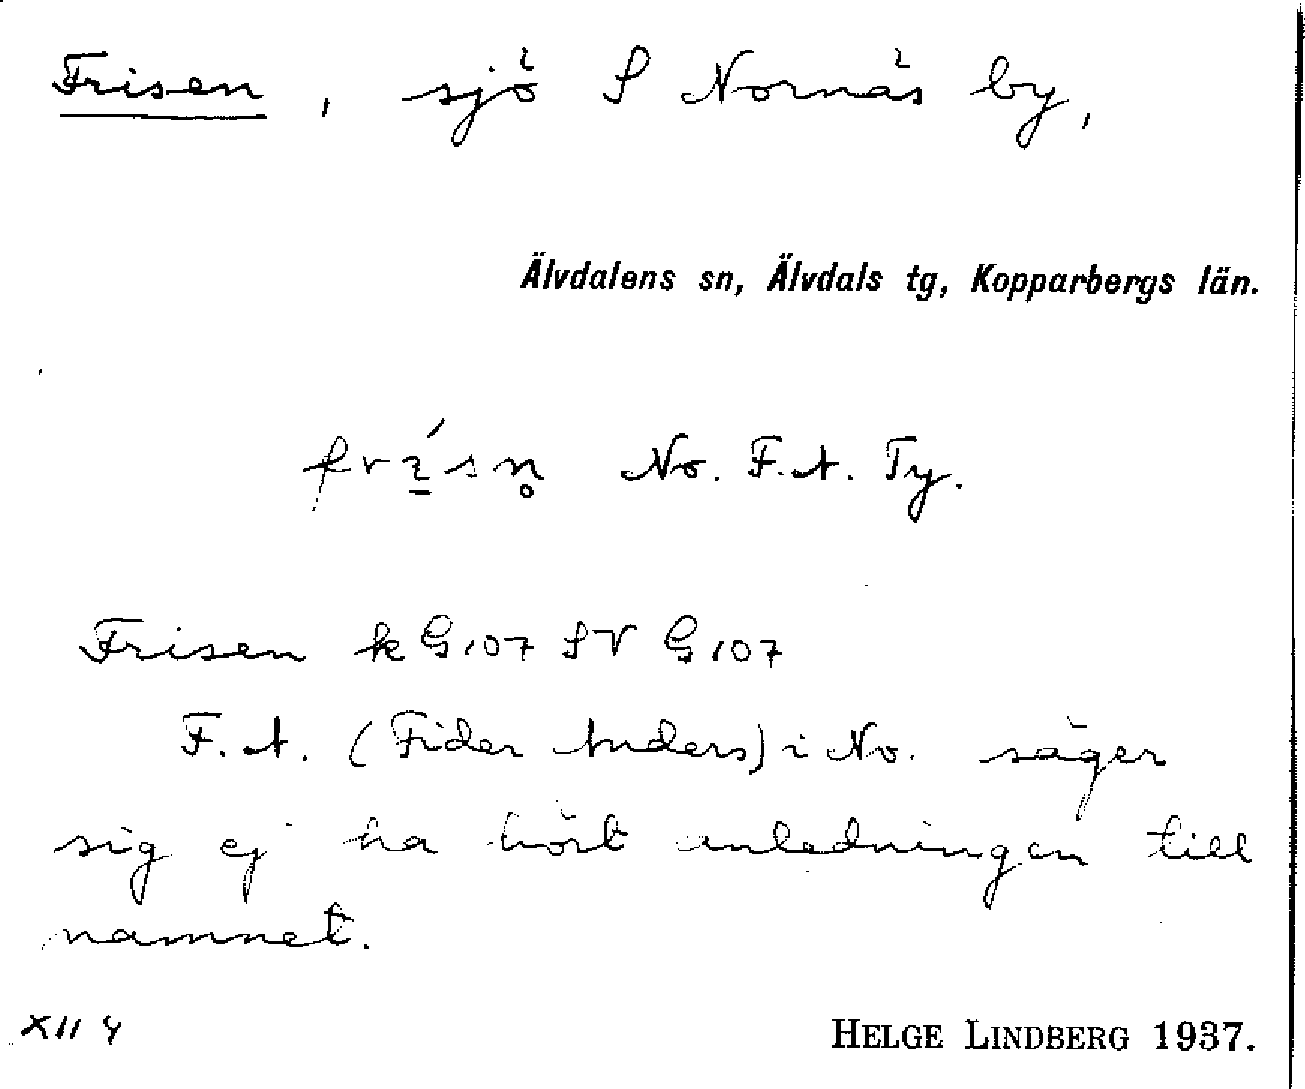 Frisen, sjö S Nornäs by,
Älvdalens sn, Älvdals tg, Kopparbergs län.
No. F.A. Ty.
Frisen k G107 SV G107
F.A. (Fider Anders) i No. säger
sig ej ha hört anledningen till
namnet.
XII 4
HELGE LINDBERG 1937.